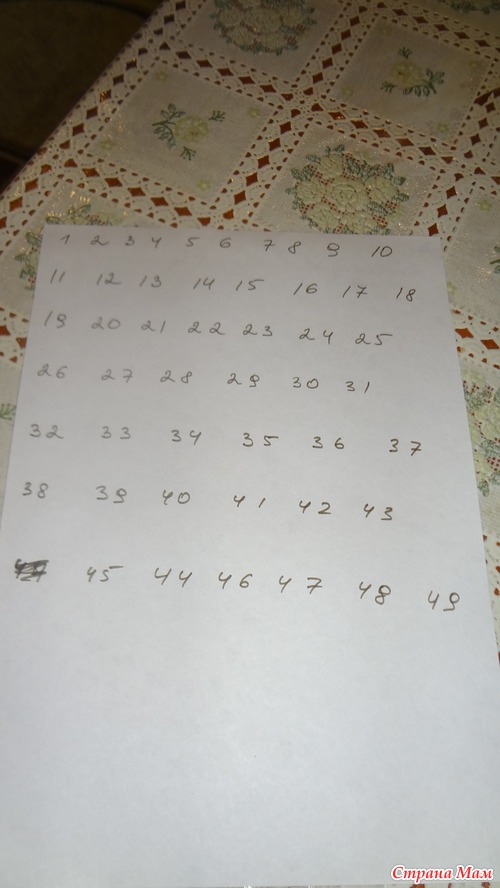 1 2 3 4 5 6 7 8 9 10
11 12 13 14 15 16 17 18
19 20 21 22 23 24 25
26 27 28 29 30 31
32 33 34 35 36 37
38 39 40 41 42 43
45 44 46 47 48 49
Страна Мам